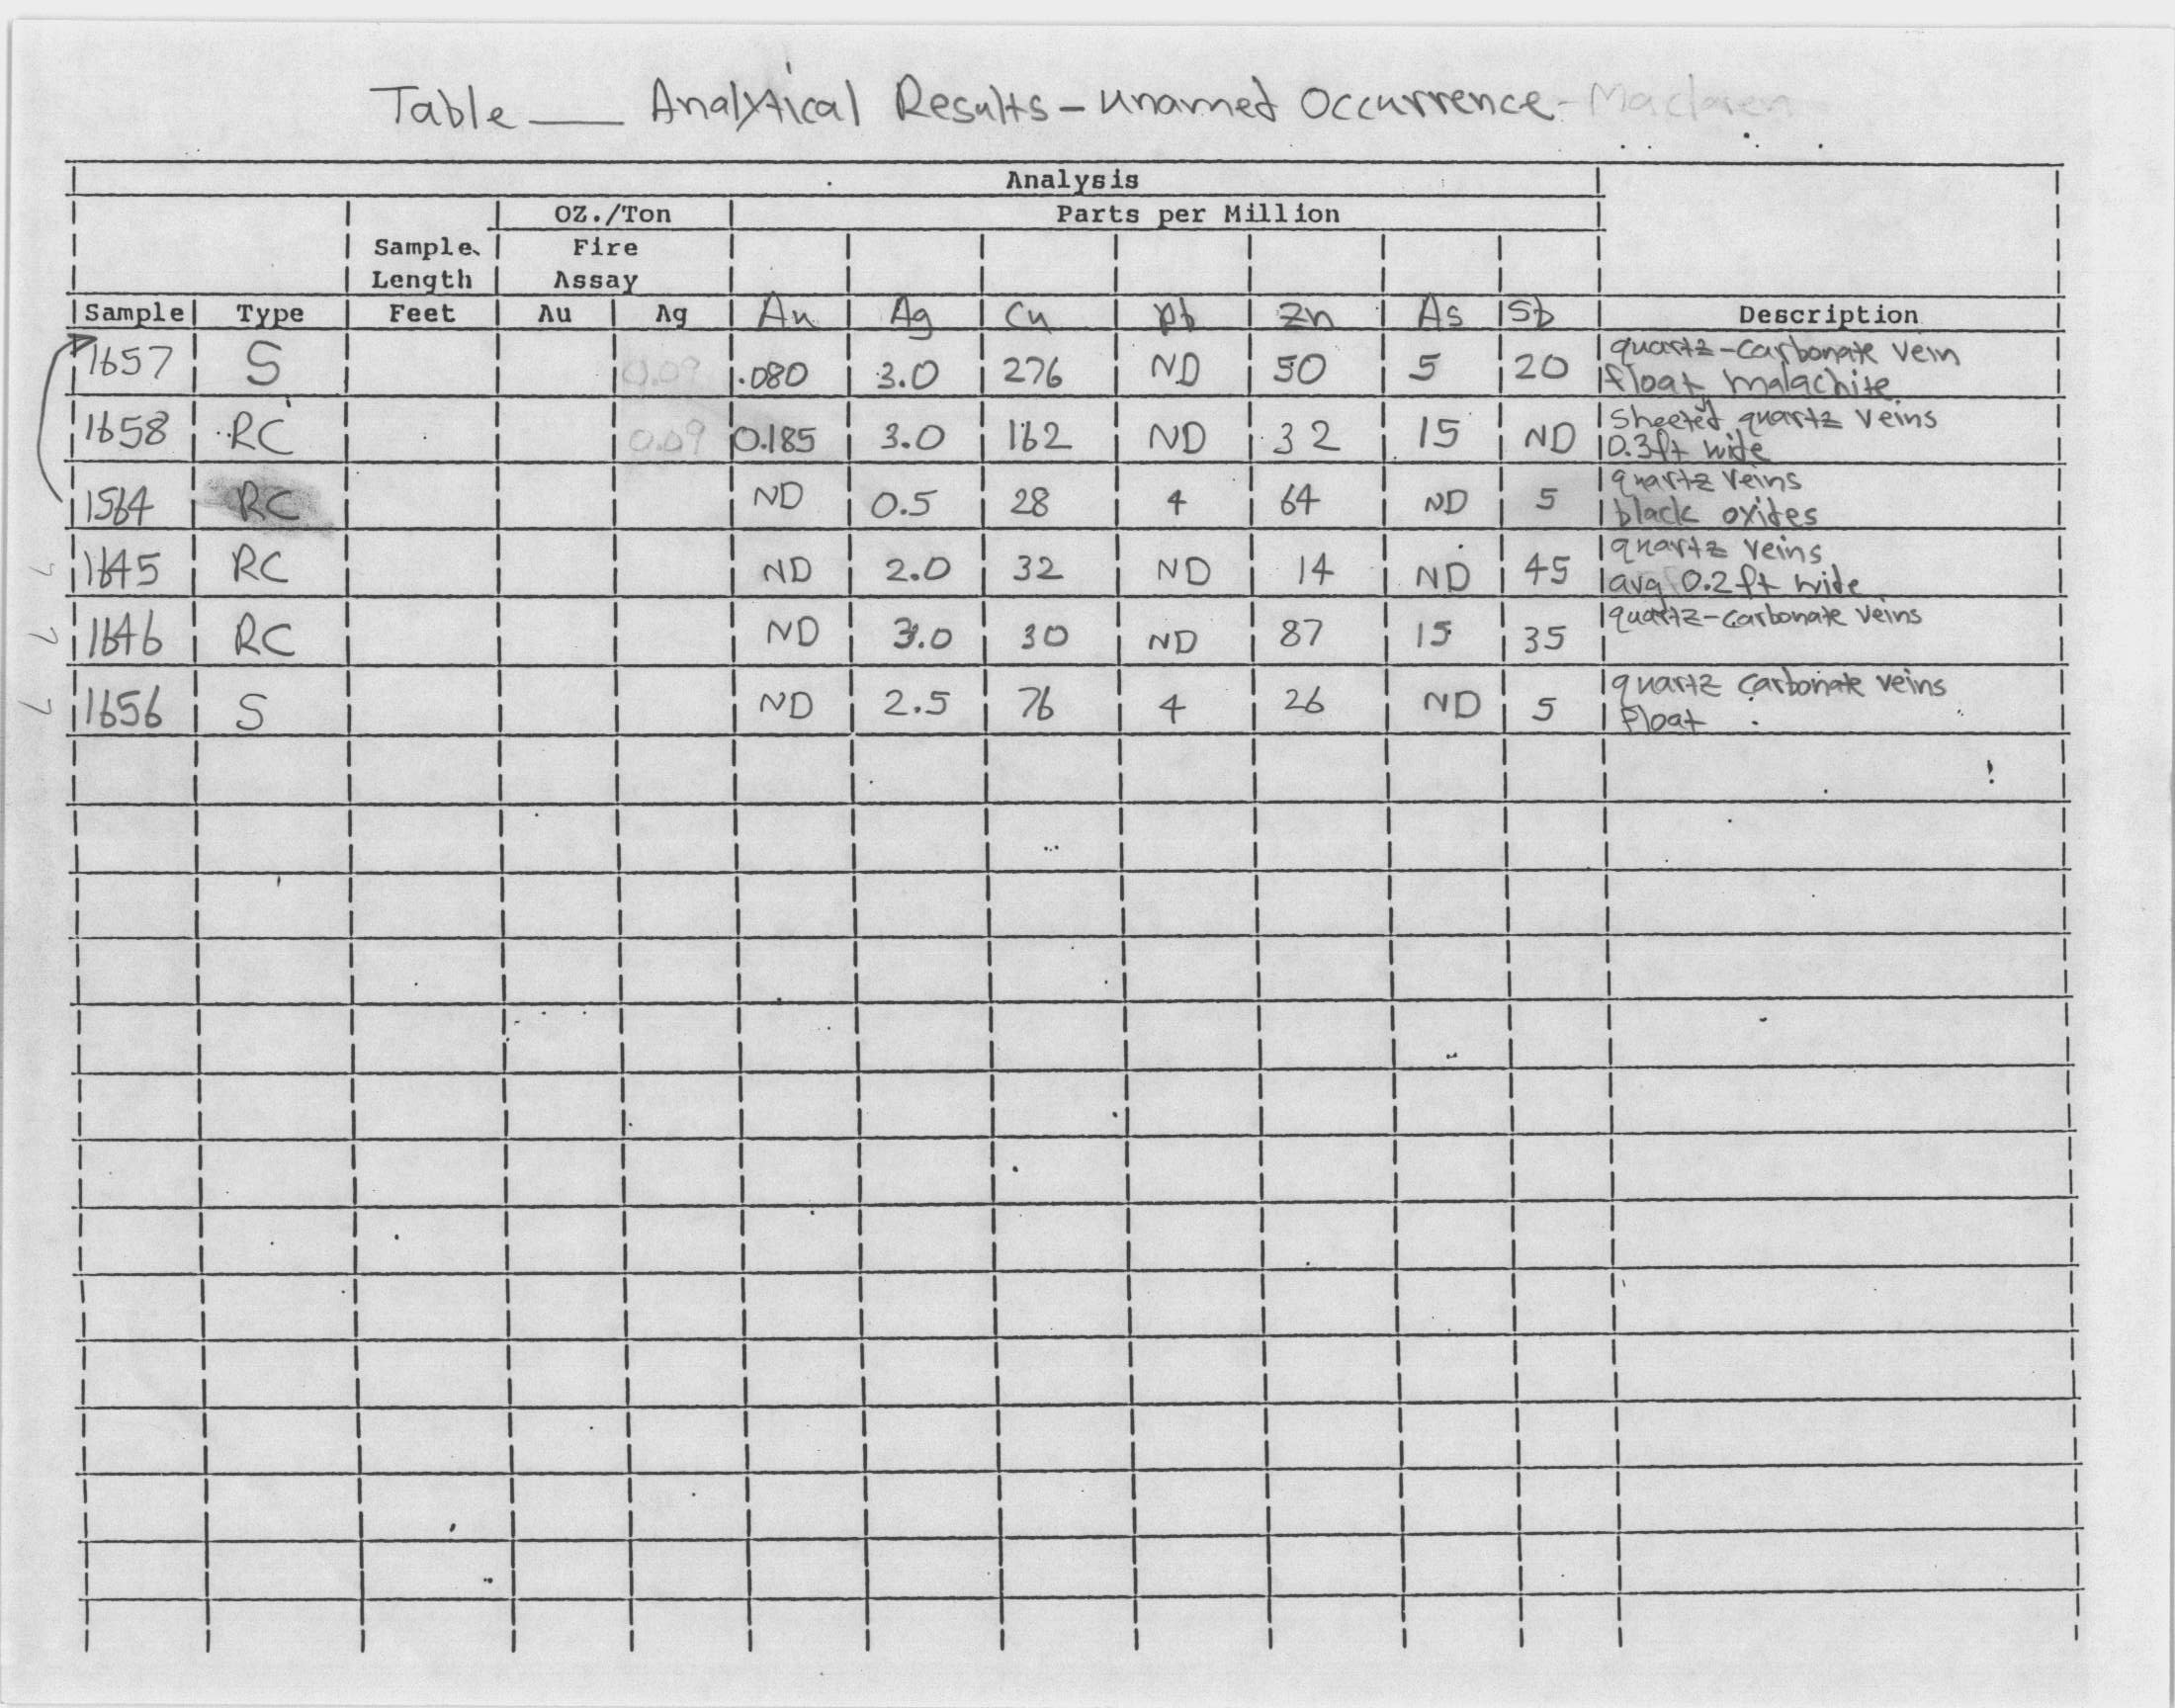 Table ___ Analytical Results - Unamed Occurrence - Maclaren
Analysis
OZ./Ton Parts per Million
Sample Fire
Length Assay
Sample Type Feet Au Ag Au Ag Cu Pb Zn As Sb Description
1657 S 0.09 .080 3.0 276 ND 50 5 20 quartz-carbonate vein
float, malachite
1658 RC 0.09 0.185 3.0 162 ND 32 15 ND sheeted quartz veins
0.3ft wide
1564 RC ND 0.5 28 4 64 ND 5 quartz veins
black oxides
1645 RC ND 2.0 32 ND 14 ND 45 quartz veins
avg 0.2 ft wide
1646 RC ND 3.0 30 ND 87 15 35 quartz-carbonate veins
1656 S ND 2.5 76 4 26 ND 5 quartz carbonate veins
float